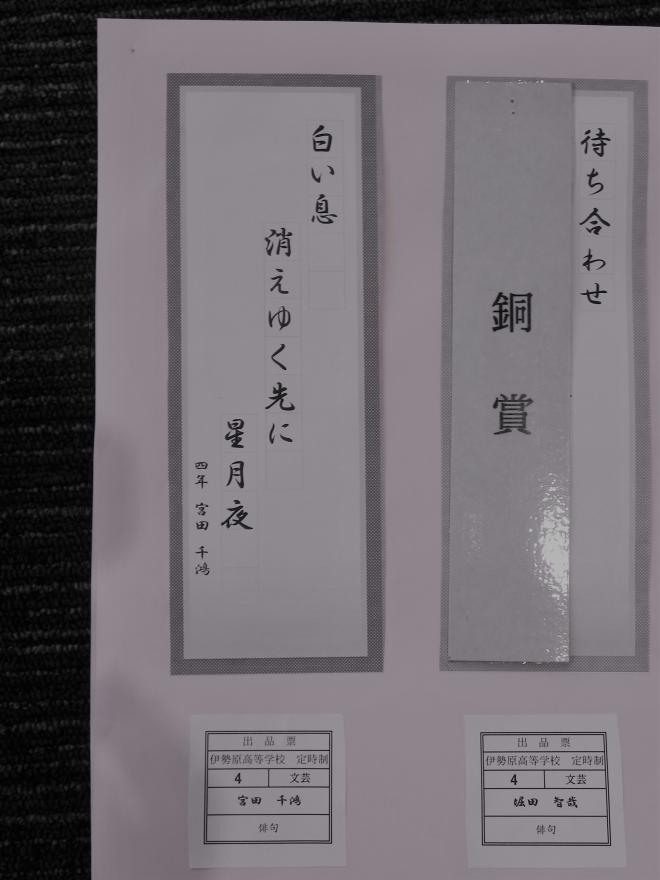 白い息
消えゆく先に
星月夜
四年 宮田 千鴻
待ち合わせ
銅賞
出品票
伊勢原高等学校 定時制
4 文芸
宮田 千鴻
俳句
出品票
伊勢原高等学校 定時制
4 文芸
堀田 智哉
俳句